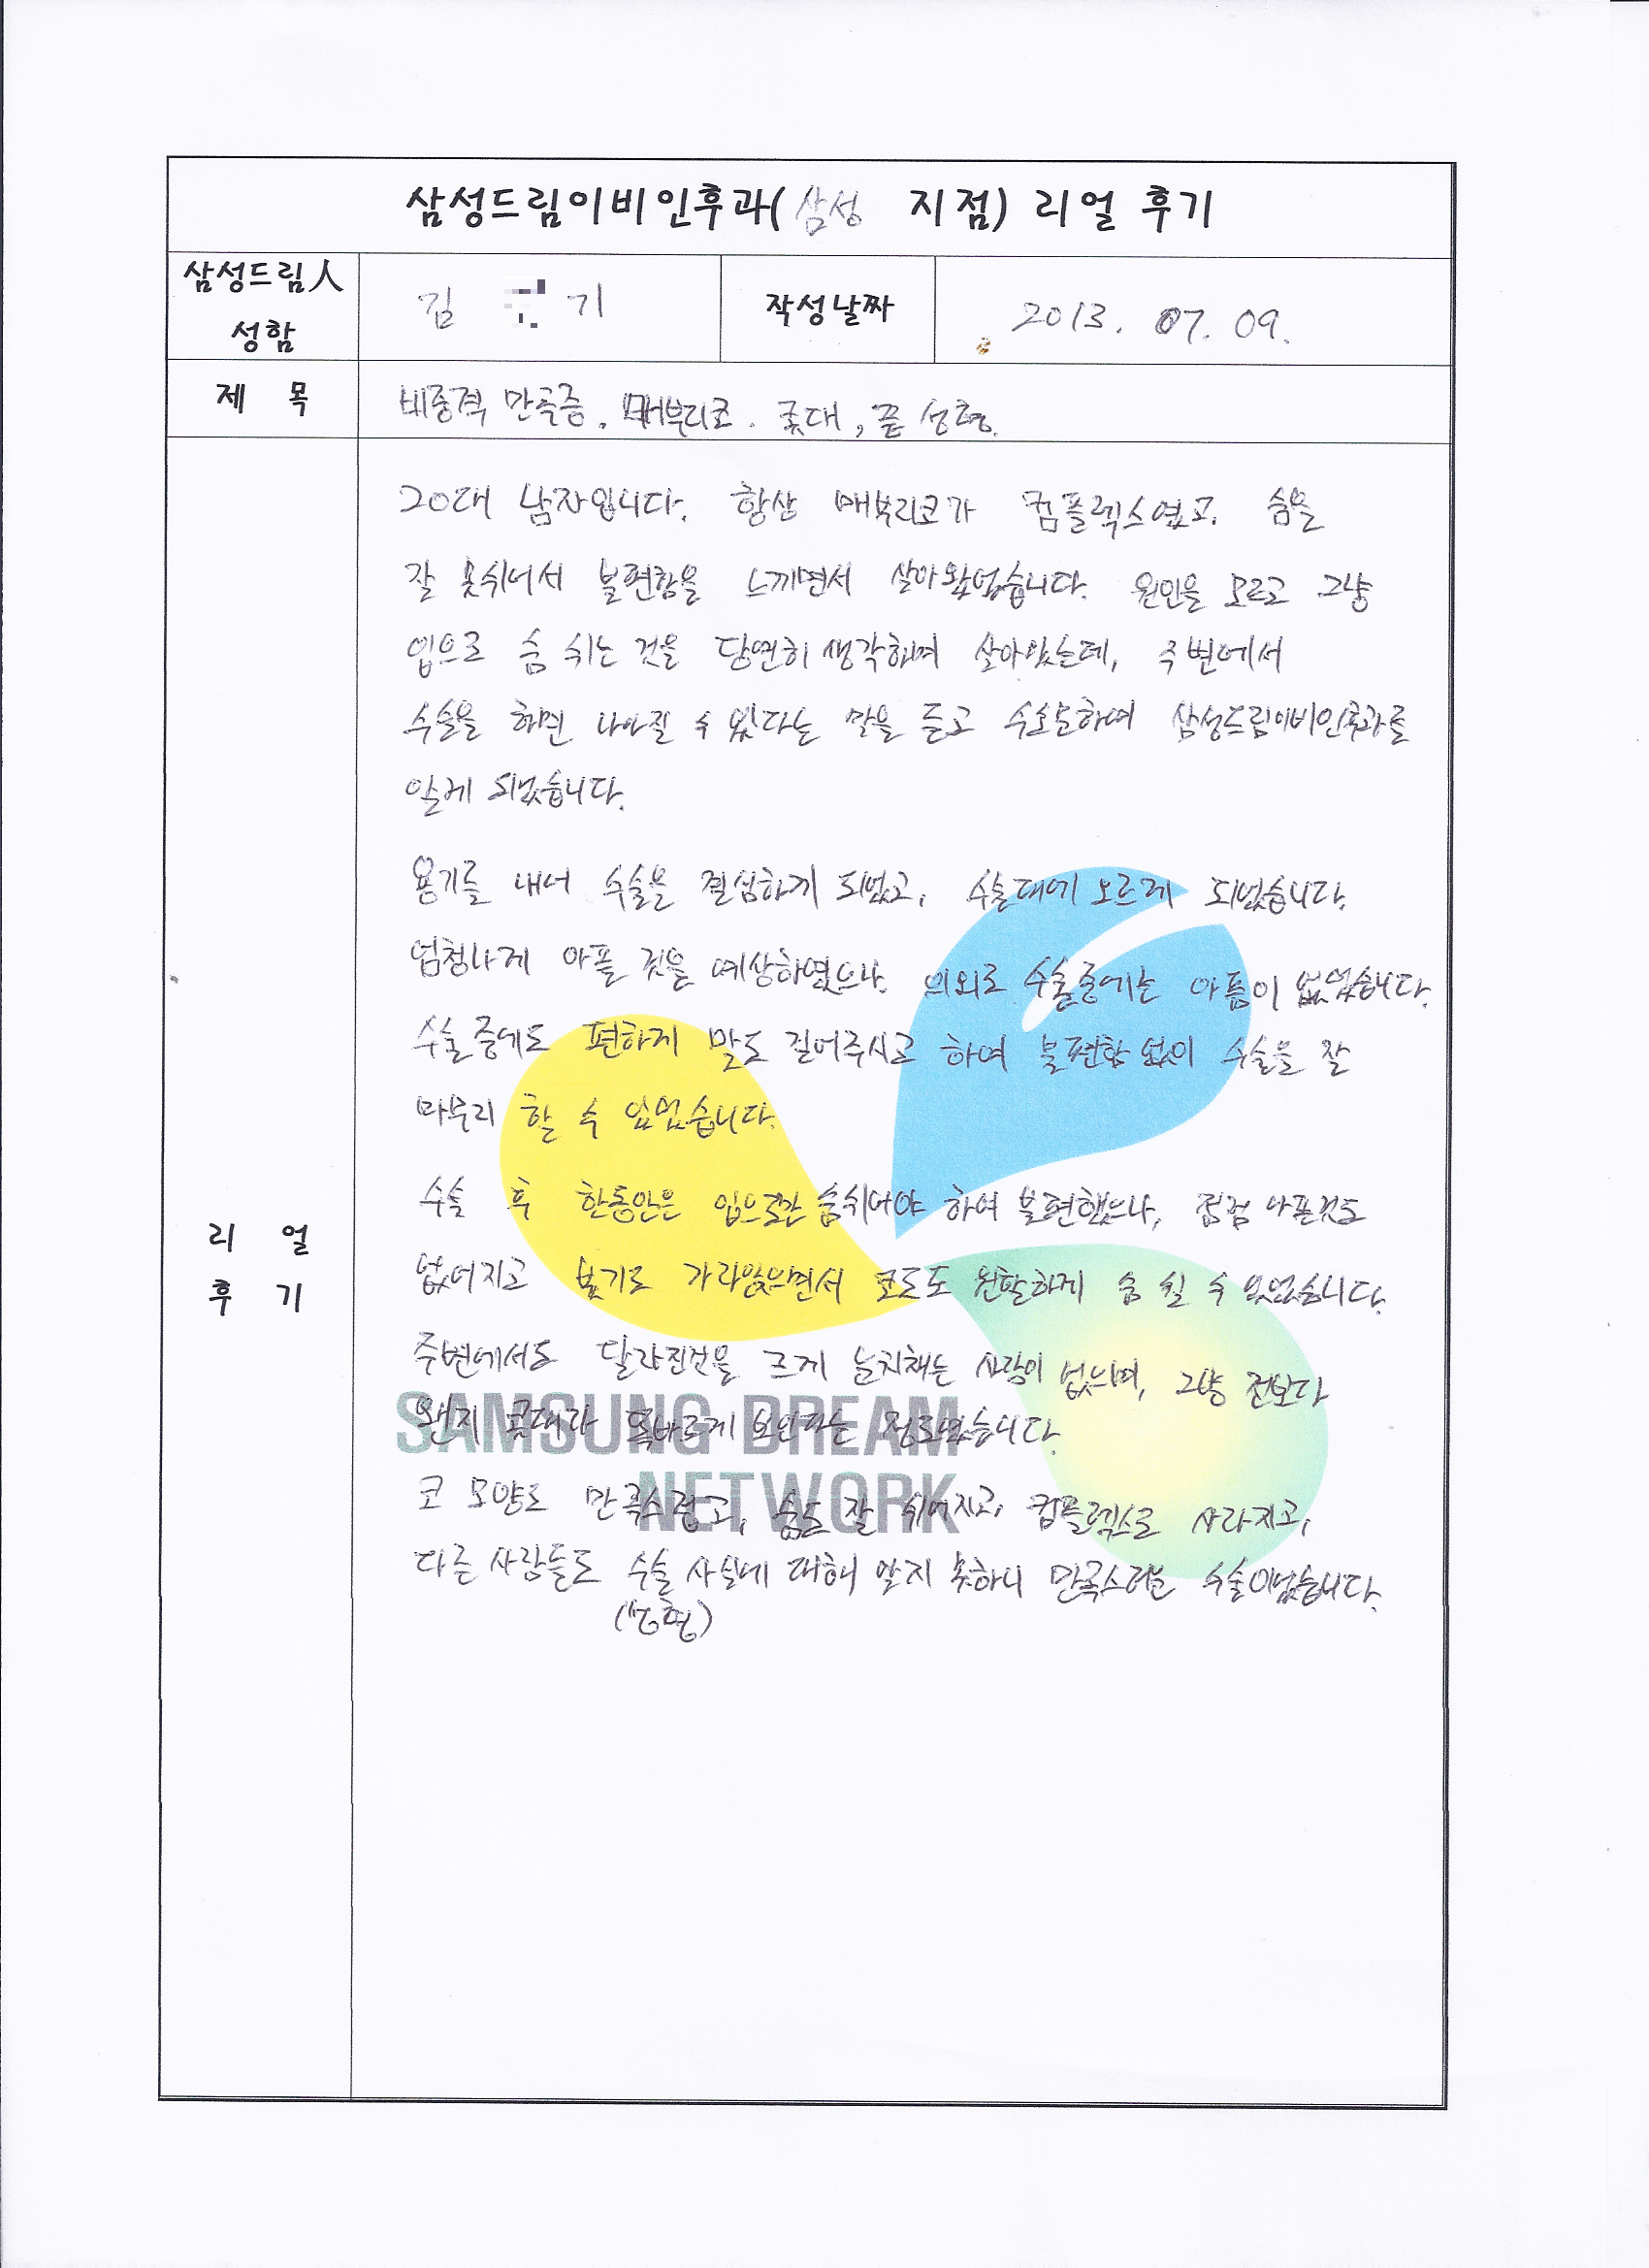 삼성드림이비인후과(삼성 지점) 리얼 후기
삼성드림人 성함 김 기 작성날짜 2013. 07. 09.
제 목 비중격 만곡증, 매부리코, 콧대, 끝 성형.
리 얼 후 기
20대 남자입니다. 항상 매부리코가 컴플렉스였고, 숨을
잘 못쉬어서 불편함을 느끼면서 살아왔었습니다. 원인을 모르고 그냥
입으로 숨 쉬는 것을 당연히 생각하며 살아왔는데, 주변에서
수술을 하면 나아질 수 있다는 말을 듣고 수소문하여 삼성드림이비인후과를
알게 되었습니다.
용기를 내어 수술을 결심하게 되었고, 수술대에 오르게 되었습니다.
엄청나게 아플 것을 예상하였으나, 의외로 수술중에는 아픔이 없었습니다.
수술 중에도 편하게 말도 걸어주시고 하여 불편함 없이 수술을 잘
마무리 할 수 있었습니다.
수술 후 한동안은 입으로만 숨쉬어야 하여 불편했으나, 점점 아픈것도
없어지고 붓기도 가라앉으면서 코로도 원활하게 숨 쉴 수 있었습니다.
주변에서도 달라진것을 크게 눈치채는 사람이 없으며, 그냥 전보다
왠지 콧대가 똑바르게 보인다는 정도였습니다.
코 모양도 만족스럽고, 숨도 잘 쉬어지고, 컴플렉스도 사라지고,
다른 사람들도 수술 사실에 대해 알지 못하니 만족스러운 수술이었습니다.
(성형)
SAMSUNG DREAM
NETWORK